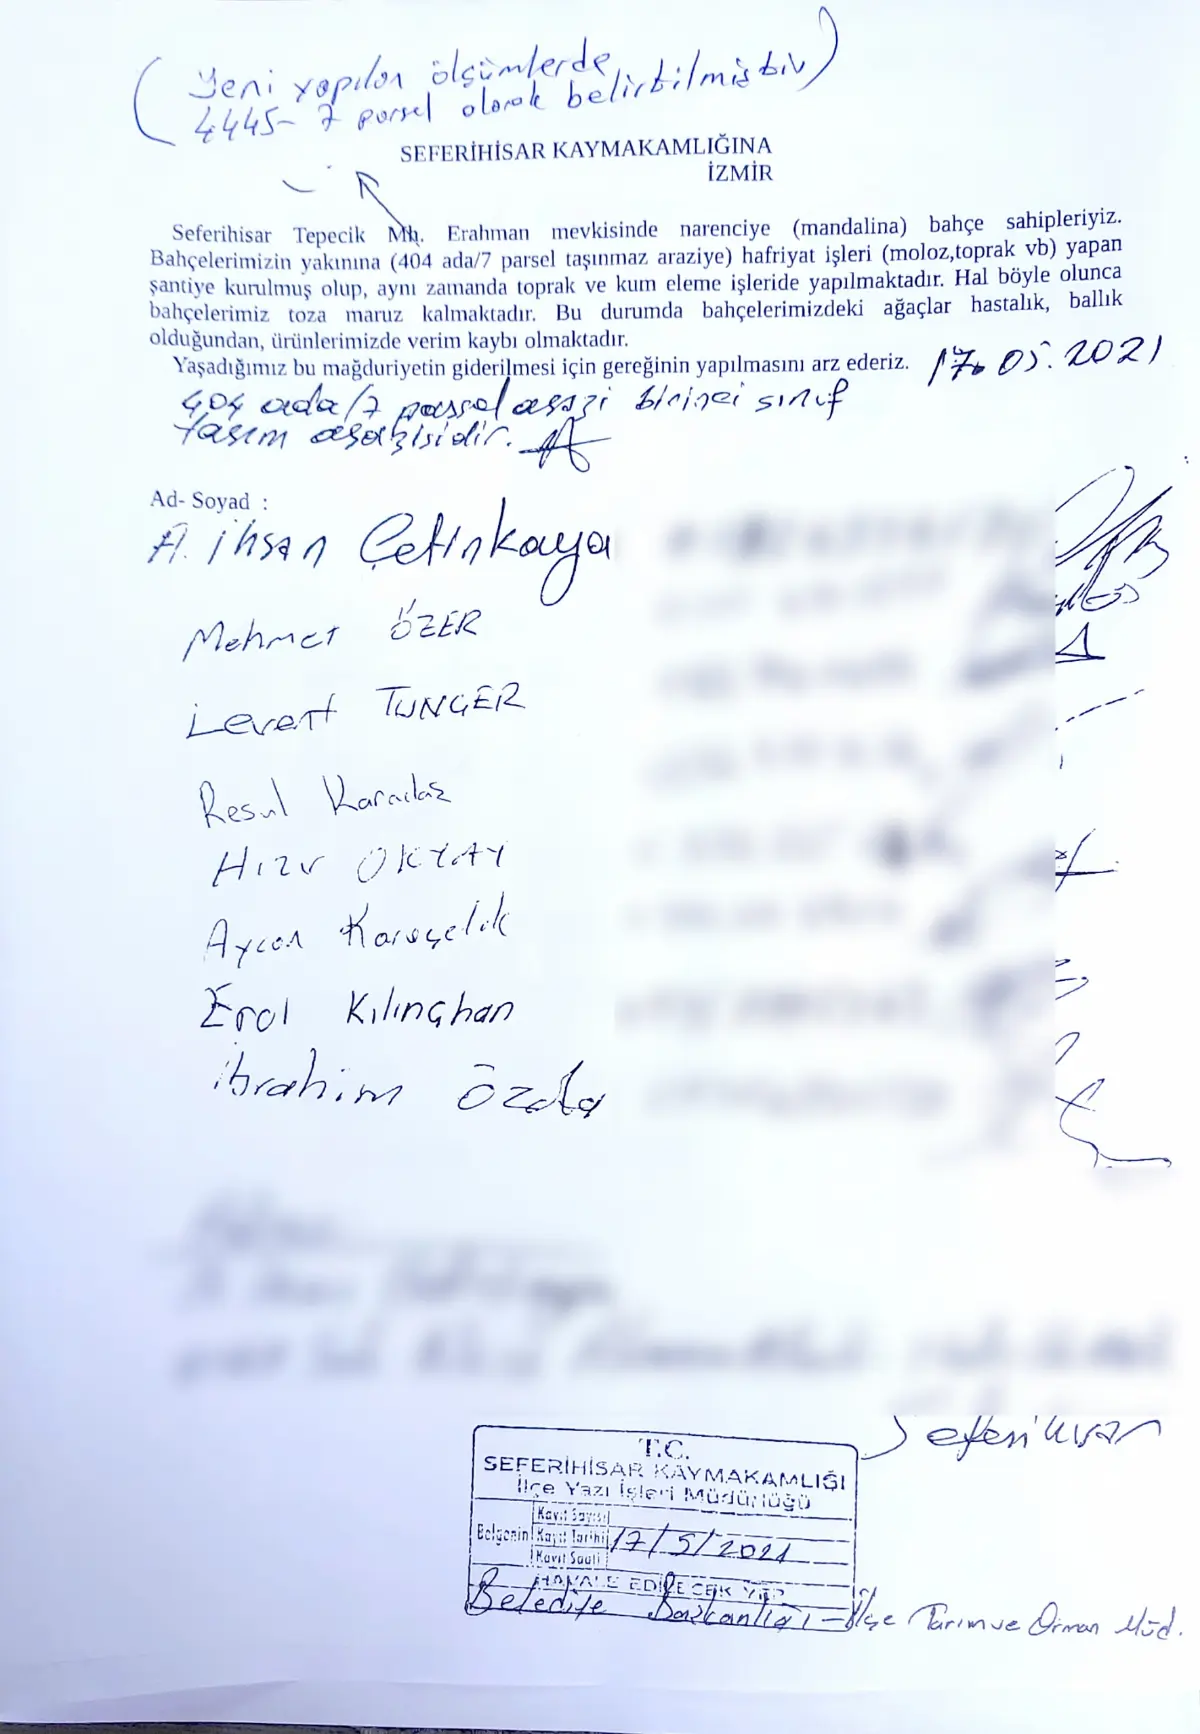 (Yeni yapılan ölçümlerde
4445- 7 parsel olarak belirtilmiştir)
SEFERİHİSAR KAYMAKAMLIĞINA
İZMİR
Seferihisar Tepecik Mh. Erahman mevkisinde narenciye (mandalina) bahçe sahipleriyiz.
Bahçelerimizin yakınına (404 ada/7 parsel taşınmaz araziye) hafriyat işleri (moloz,toprak vb) yapan
şantiye kurulmuş olup, aynı zamanda toprak ve kum eleme işleride yapılmaktadır. Hal böyle olunca
bahçelerimiz toza maruz kalmaktadır. Bu durumda bahçelerimizdeki ağaçlar hastalık, ballık
olduğundan, ürünlerimizde verim kaybı olmaktadır.
Yaşadığımız bu mağduriyetin giderilmesi için gereğinin yapılmasını arz ederiz. 17.05.2021
404 ada/7 parsel arazi birinci sınıf
tarım arazisidir.
Ad- Soyad :
A. İhsan Çetinkaya
Mehmet ÖZER
Levent TUNÇER
Resul
Hızır OKYAY
Aycan Karaçelik
Erol Kılınçhan
İbrahim
Seferihisar
T.C.
SEFERİHİSAR KAYMAKAMLIĞI
İlçe Yazı İşleri Müdürlüğü
Belgenin
Kayıt Sayısı
Kayıt Tarihi 17/5/2021
Kayıt Saati
HAVALE EDİLECEK YER
Belediye Başkanlığı - İlçe Tarım ve Orman Müd.